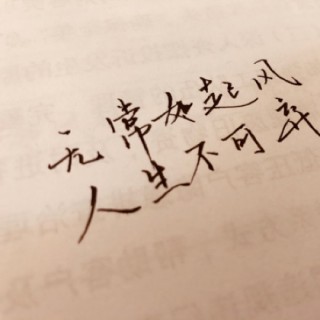 无常如起风
人生不可弃